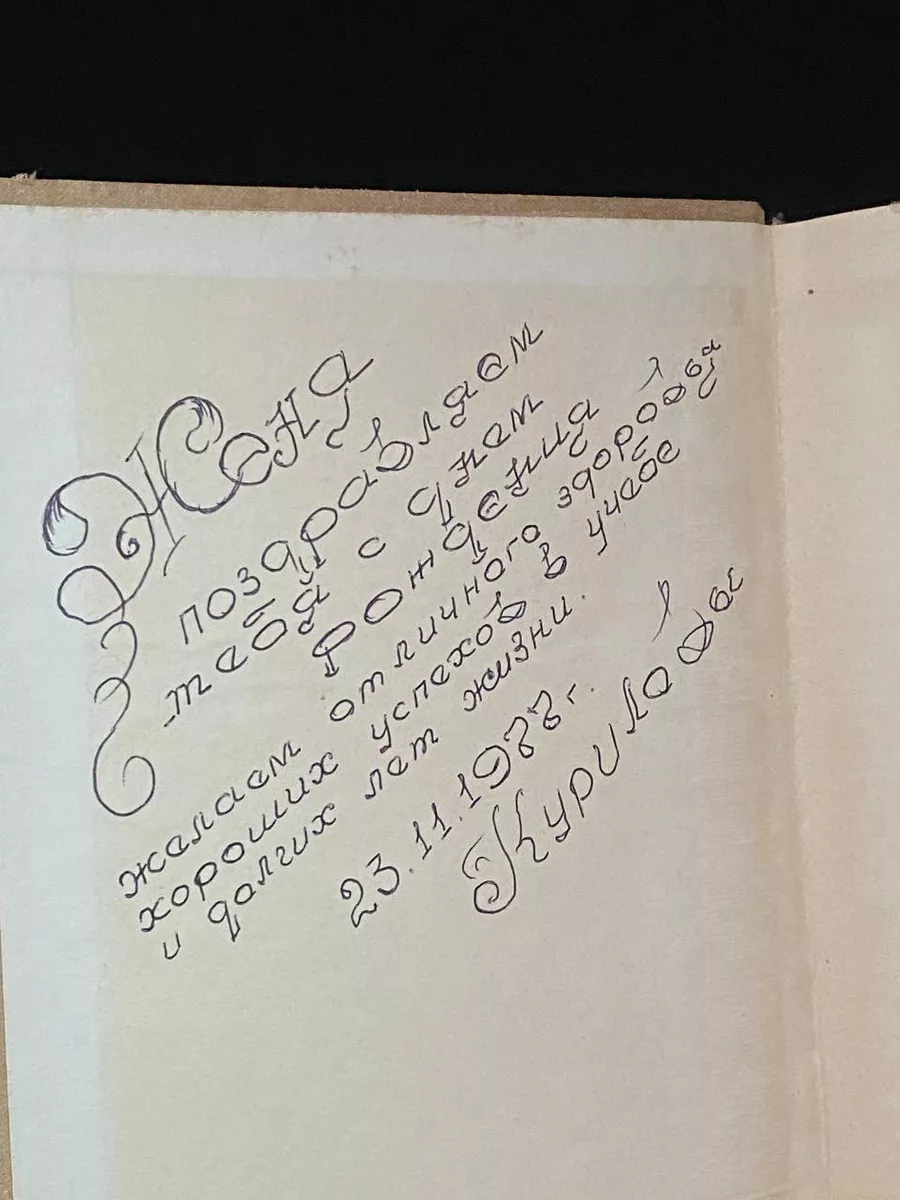 Женя
поздравляем
тебя с днем
рождения
желаем отличного здоровья
хороших успехов в учебе
и долгих лет жизни.
23.11.1977г.
Куриловы